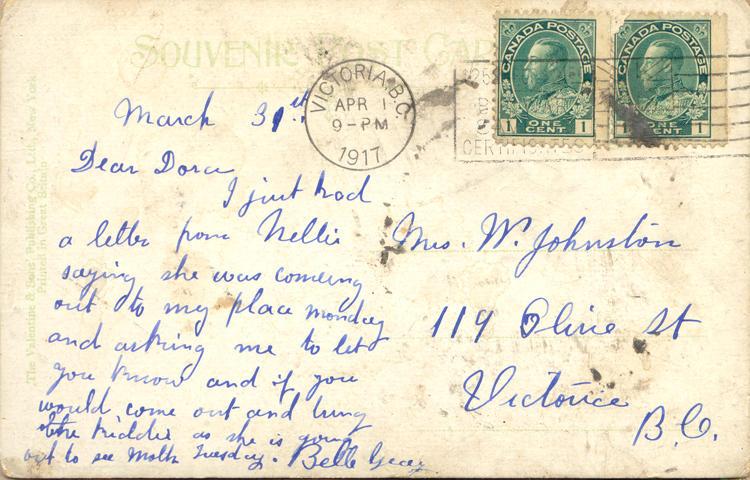 SOUVENIR POST CARD
CANADA POSTAGE
ONE CENT
1 1
CANADA POSTAGE
ONE CENT
1 1
VICTORIA, B.C.
APR 1
9-PM
1917
March 31st
Dear Dora
I just had
a letter from Nellie
saying she was comeing
out to my place monday
and asking me to let
you know and if you
would come out and bring
the kiddie as she is going
out to see Moth Tuesday. Belle
Mrs. W. Johnston
119 Olive St
Victoria
B.C.
The Valentine & Sons Publishing Co., Ltd., New York
Printed in Great Britain